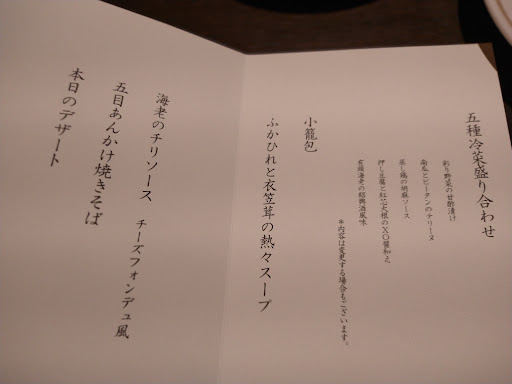 五種冷菜盛り合わせ
彩り野菜の甘酢漬け
南瓜とピータンのテリーヌ
蒸し鶏の胡麻ソース
押し豆腐と紅芯大根のXO醤和え
有頭海老の紹興酒風味
＊内容は変更する場合もございます。
小籠包
ふかひれと衣笠茸の熱々スープ
海老のチリソース チーズフォンデュ風
五目あんかけ焼きそば
本日のデザート